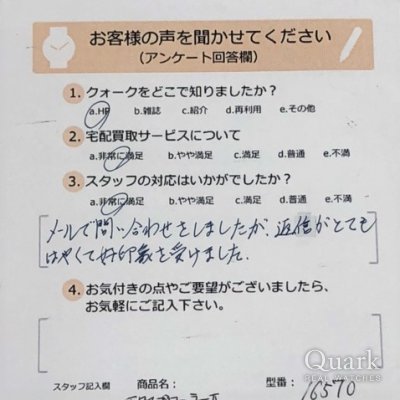 お客様の声を聞かせてください
（アンケート回答欄）
1. クォークをどこで知りましたか？
a.HP b.雑誌 c.紹介 d.再利用 e.その他
2. 宅配買取サービスについて
a.非常に満足 b.やや満足 c.満足 d.普通 e.不満
3. スタッフの対応はいかがでしたか？
a.非常に満足 b.やや満足 c.満足 d.普通 e.不満
メールで問い合わせをしましたが、返信がとても
はやくて好印象を受けました。
4. お気付きの点やご要望がございましたら、
お気軽にご記入下さい。
Quark
REAL WATCHES
スタッフ記入欄 商品名： 型番： 16570